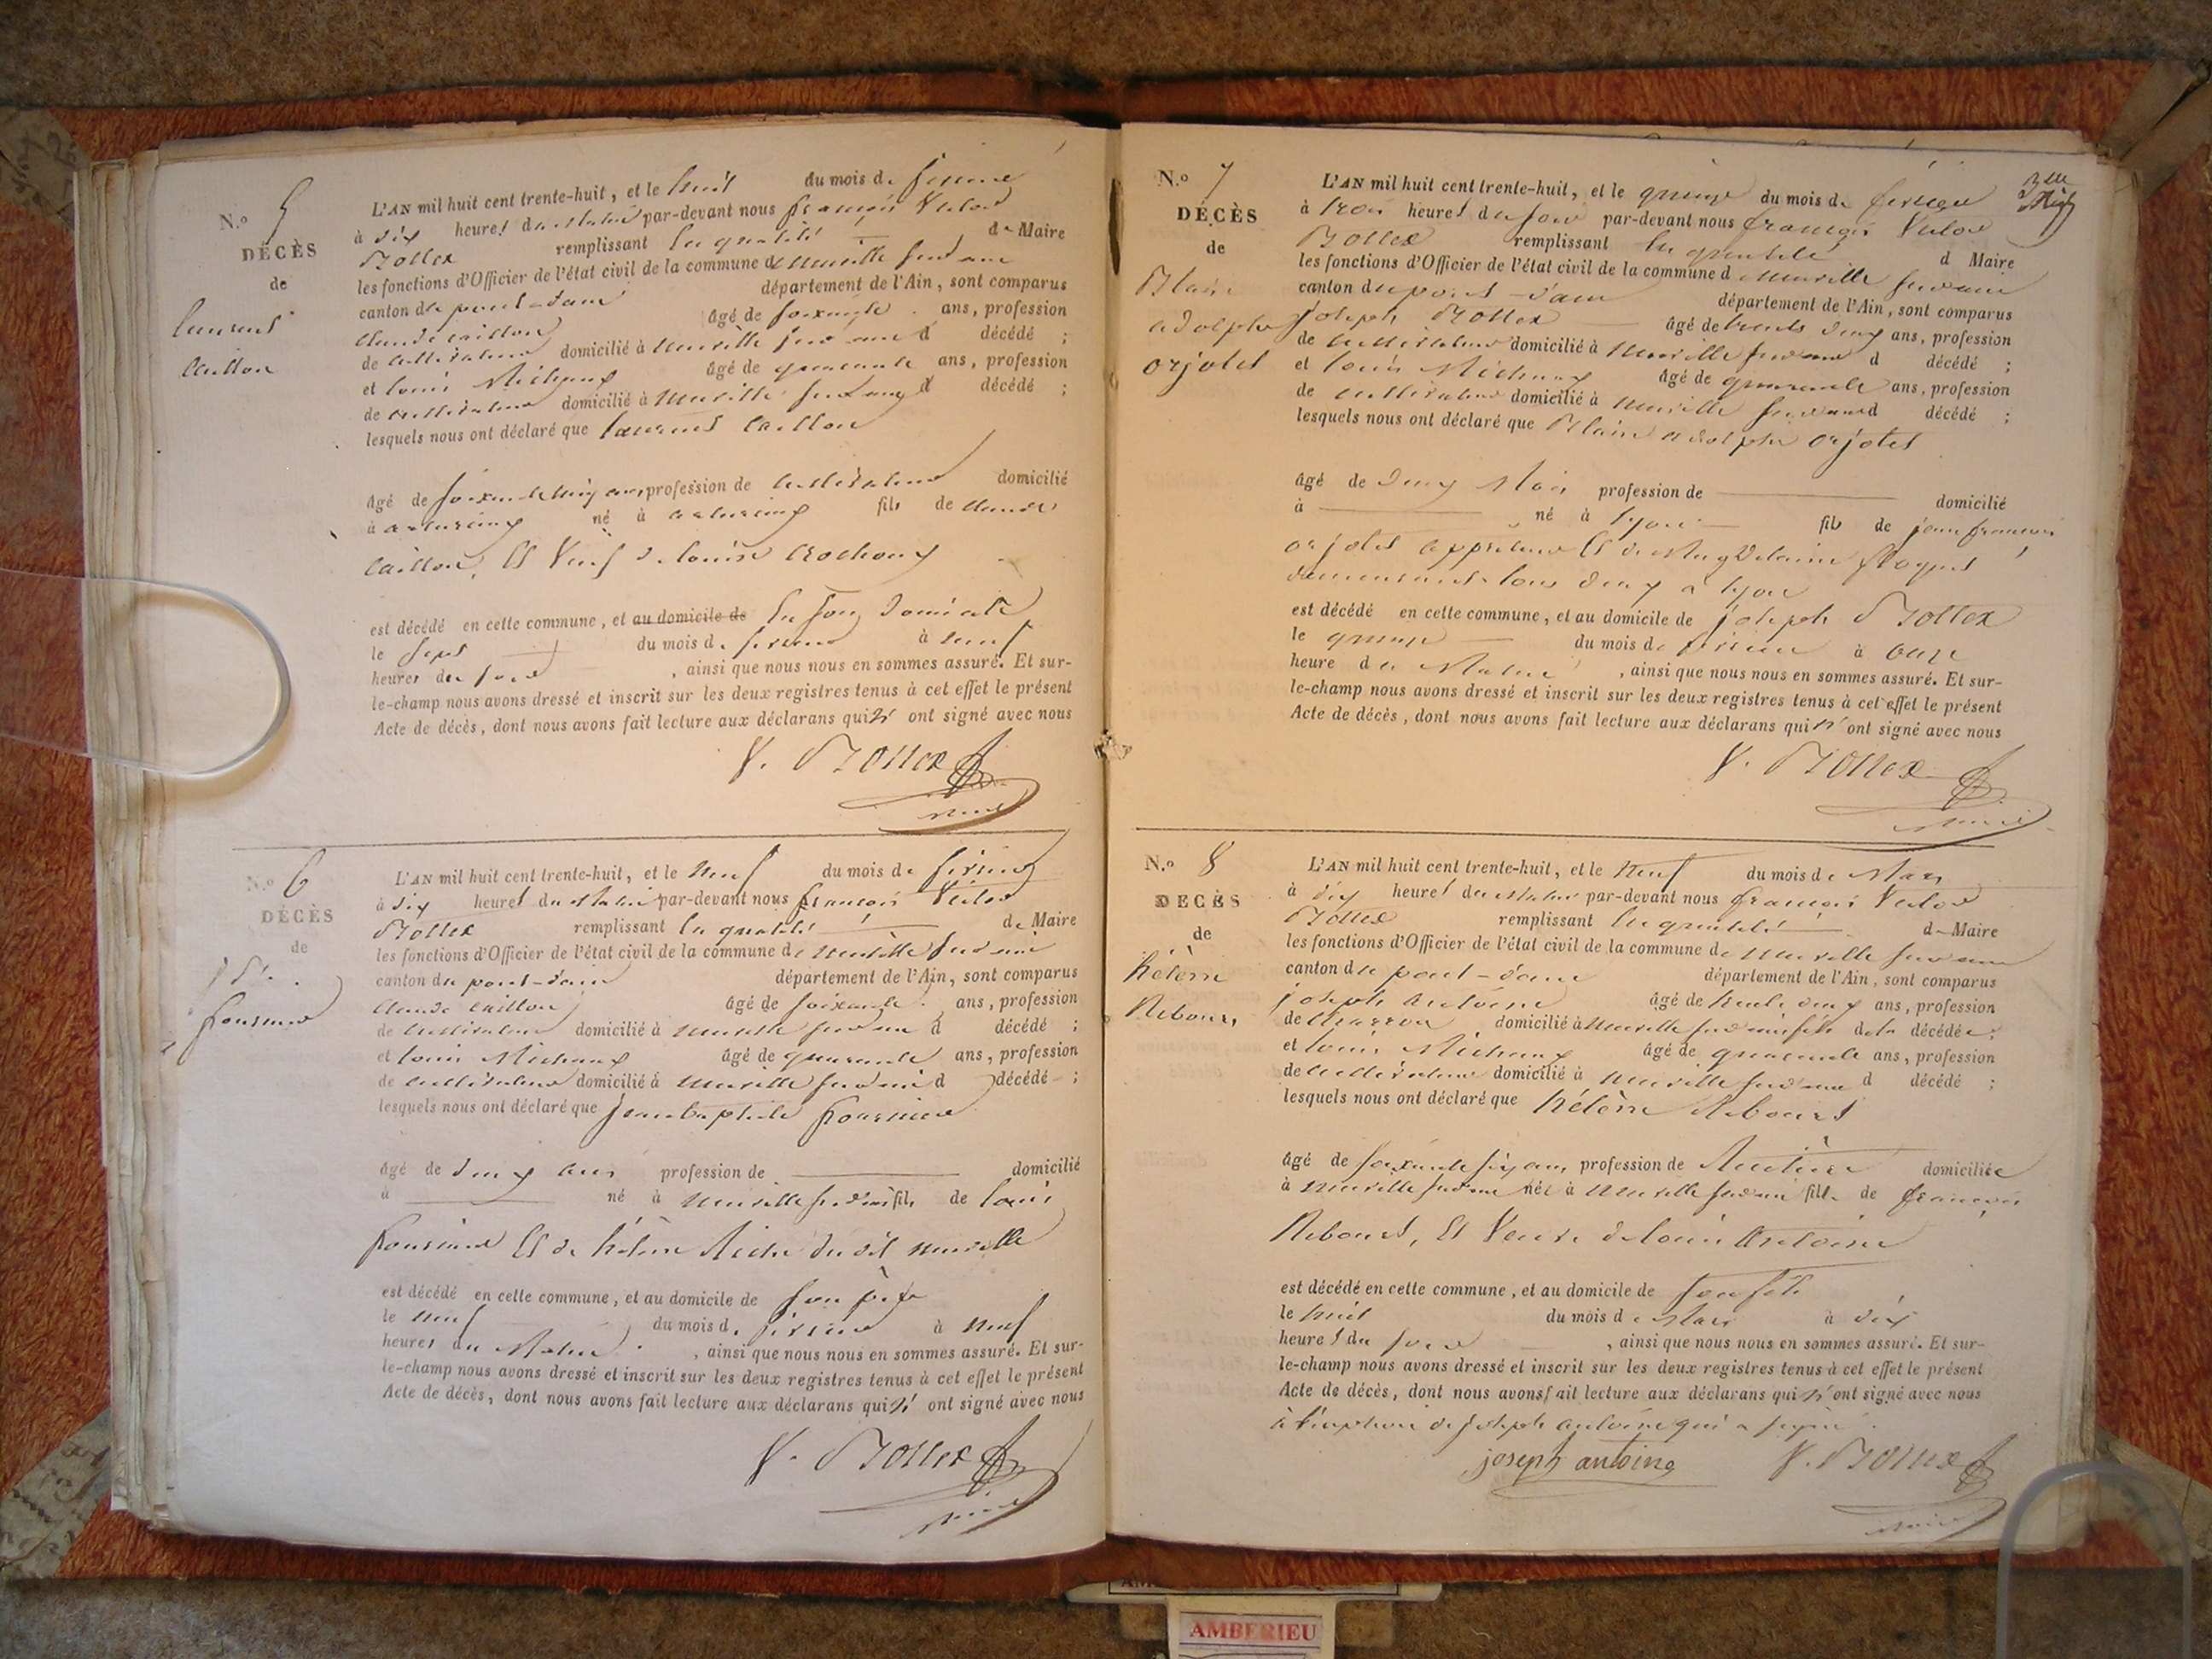 N.o 5
DÉCÈS
de
Laurent
Caillon
L'AN mil huit cent trente-huit, et le huit du mois de fevrier
à dix heures du matin par-devant nous françois Victor
Bollex remplissant la qualité de Maire
les fonctions d'Officier de l'état civil de la commune de neuville sur ain
canton de pont-dain département de l'Ain, sont comparus
Claude caillon âgé de soixante ans, profession
de cultivateur domicilié à neuville sur ain d décédé ;
et louis Michaux âgé de quarante ans, profession
de cultivateur domicilié à neuville sur ain d décédé ;
lesquels nous ont déclaré que laurent Caillon
âgé de soixante cinq ans, profession de cultivateur domicilié
à né à fils de claude
caillon, et veuf de louise
est décédé en cette commune, et au domicile de en son domicile
le sept du mois de fevrier à neuf
heures du soir, ainsi que nous nous en sommes assuré. Et sur-
le-champ nous avons dressé et inscrit sur les deux registres tenus à cet effet le présent
Acte de décès, dont nous avons fait lecture aux déclarans qui n' ont signé avec nous
V. Bollex
maire
N.o 6
DÉCÈS
de
fournier
L'AN mil huit cent trente-huit, et le neuf du mois de fevrier
à dix heures du matin par-devant nous françois Victor
Bollex remplissant la qualité de Maire
les fonctions d'Officier de l'état civil de la commune de neuville sur ain
canton de pont-dain département de l'Ain, sont comparus
Claude caillon âgé de soixante ans, profession
de cultivateur domicilié à neuville sur ain d décédé ;
et louis Michaux âgé de quarante ans, profession
de cultivateur domicilié à neuville sur ain d décédé ;
lesquels nous ont déclaré que jean baptiste fournier
âgé de deux ans profession de domicilié
à né à neuville sur ain fils de louis
fournier et de hélène du dit neuville
est décédé en cette commune, et au domicile de son père
le neuf du mois de fevrier à neuf
heures du matin, ainsi que nous nous en sommes assuré. Et sur-
le-champ nous avons dressé et inscrit sur les deux registres tenus à cet effet le présent
Acte de décès, dont nous avons fait lecture aux déclarans qui n' ont signé avec nous
V. Bollex
maire
N.o 7
DÉCÈS
de
Blain
adolphe
orjolet
L'AN mil huit cent trente-huit, et le quinze du mois de fevrier
à trois heures du soir par-devant nous françois Victor
Bollex remplissant la qualité d Maire
les fonctions d'Officier de l'état civil de la commune d neuville sur ain
canton du pont-d'ain département de l'Ain, sont comparus
joseph Bollex âgé de trente deux ans, profession
de cultivateur domicilié à neuville sur ain d décédé ;
et louis Michaux âgé de quarante ans, profession
de cultivateur domicilié à neuville sur ain d décédé ;
lesquels nous ont déclaré que Blain adolphe orjolet
âgé de deux mois profession de domicilié
à né à lyon fils de jean françois
orjolet et de Magdelaine
demeurant tous deux à lyon
est décédé en cette commune, et au domicile de joseph Bollex
le quinze du mois de fevrier à onze
heure du matin, ainsi que nous nous en sommes assuré. Et sur-
le-champ nous avons dressé et inscrit sur les deux registres tenus à cet effet le présent
Acte de décès, dont nous avons fait lecture aux déclarans qui n' ont signé avec nous
V. Bollex
maire
N.o 8
DECÈS
de
hélène
Rebours
L'AN mil huit cent trente-huit, et le neuf du mois de Mars
à dix heures du matin par-devant nous françois Victor
Bollex remplissant la qualité de Maire
les fonctions d'Officier de l'état civil de la commune de neuville sur ain
canton du pont-d'ain département de l'Ain, sont comparus
joseph antoine âgé de trente deux ans, profession
de domicilié à neuville sur ain fils de la décédée ;
et louis Michaux âgé de quarante ans, profession
de cultivateur domicilié à neuville sur ain d décédé ;
lesquels nous ont déclaré que hélène Rebours
âgé de soixante six ans, profession de domiciliée
à neuville sur ain née à neuville sur ain fille de françois
Rebours, et veuve de louis antoine
est décédé en cette commune, et au domicile de son fils
le huit du mois de Mars à dix
heures du soir, ainsi que nous nous en sommes assuré. Et sur-
le-champ nous avons dressé et inscrit sur les deux registres tenus à cet effet le présent
Acte de décès, dont nous avons fait lecture aux déclarans qui n' ont signé avec nous
à l'exception de joseph antoine qui a signé
joseph antoine V. Bollex
maire
AMBERIEU